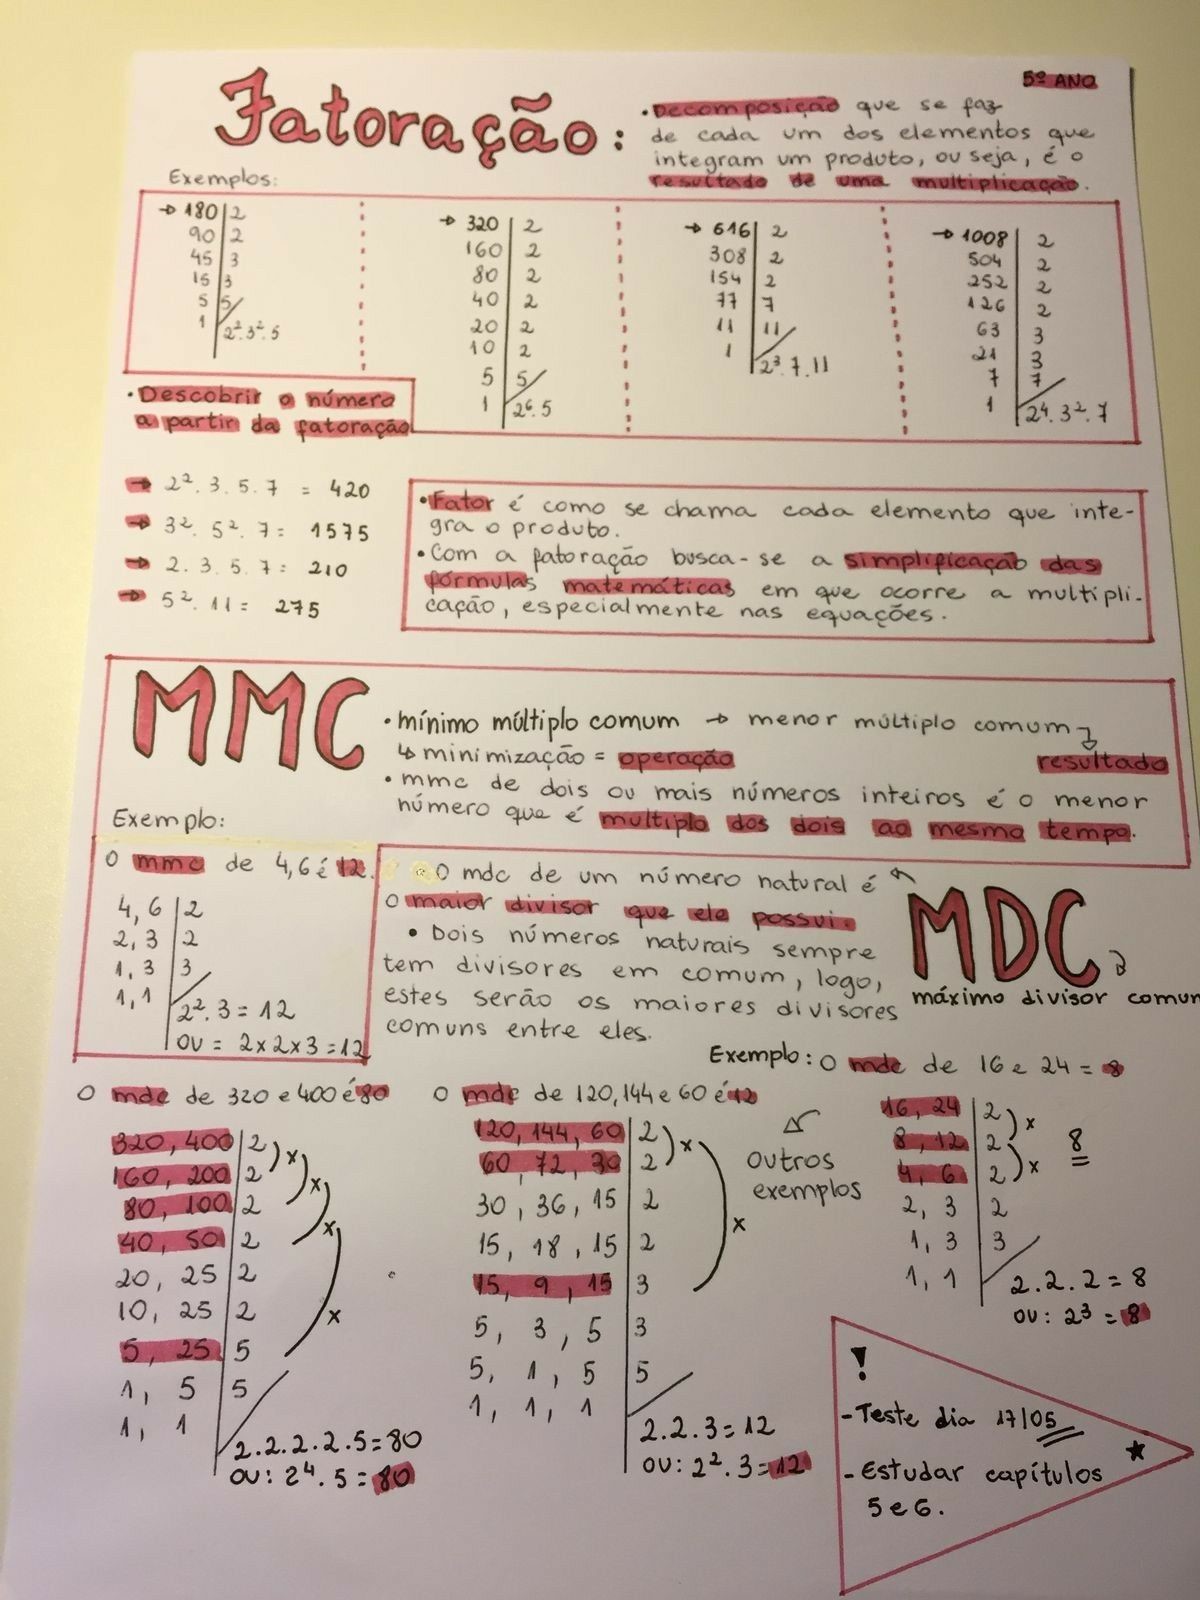 5º ANO
Fatoração:
• Decomposição que se faz
de cada um dos elementos que
integram um produto, ou seja, é o
resultado de uma multiplicação.
Exemplos:
→ 180 | 2
90 | 2
45 | 3
15 | 3
5 | 5
1 | 2².3².5
→ 320 | 2
160 | 2
80 | 2
40 | 2
20 | 2
10 | 2
5 | 5
1 | 2⁶.5
→ 616 | 2
308 | 2
154 | 2
77 | 7
11 | 11
1 | 2³.7.11
→ 1008 | 2
504 | 2
252 | 2
126 | 2
63 | 3
21 | 3
7 | 7
1 | 2⁴.3².7
• Descobrir o número
a partir da fatoração
→ 2².3.5.7 = 420
→ 3².5².7 = 1575
→ 2.3.5.7 = 210
→ 5².11 = 275
• Fator é como se chama cada elemento que inte-
gra o produto.
• Com a fatoração busca-se a simplificação das
fórmulas matemáticas em que ocorre a multipli-
cação, especialmente nas equações.
MMC
• mínimo múltiplo comum → menor múltiplo comum
↳ minimização = operação resultado
• mmc de dois ou mais números inteiros é o menor
número que é multiplo dos dois ao mesmo tempo.
Exemplo:
O mmc de 4,6 é 12.
4, 6 | 2
2, 3 | 2
1, 3 | 3
1, 1 | 2².3 = 12
ou = 2x2x3 = 12
• O mdc de um número natural é
o maior divisor que ele possui.
• Dois números naturais sempre
tem divisores em comum, logo,
estes serão os maiores divisores
comuns entre eles.
MDC
máximo divisor comum
Exemplo: O mdc de 16 e 24 = 8
O mdc de 320 e 400 é 80
320, 400 | 2
160, 200 | 2 x
80, 100 | 2 x
40, 50 | 2 x
20, 25 | 2
10, 25 | 2 x
5, 25 | 5
1, 5 | 5
1, 1
2.2.2.2.5 = 80
ou: 2⁴.5 = 80
O mdc de 120, 144 e 60 é 12
120, 144, 60 | 2 x
60, 72, 30 | 2
30, 36, 15 | 2
15, 18, 15 | 2 x
15, 9, 15 | 3
5, 3, 5 | 3
5, 1, 5 | 5
1, 1, 1
2.2.3 = 12
ou: 2².3 = 12
outros
exemplos
16, 24 | 2 x
8, 12 | 2 8
4, 6 | 2 x
2, 3 | 2
1, 3 | 3
1, 1
2.2.2 = 8
ou: 2³ = 8
!
- Teste dia 17/05
- Estudar capítulos
5 e 6.